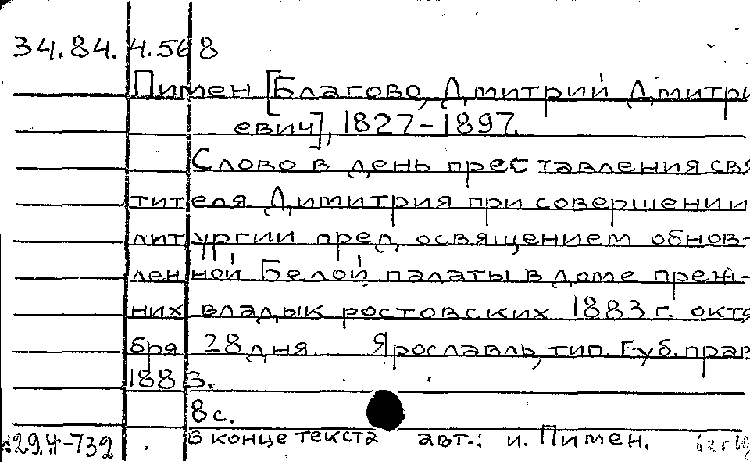 34.84.4.568
Пимен [Благово, Дмитрий Дмитри
евич], 1827-1897.
Слово в день преставления свя
тителя Димитрия при совершении
литургии пред освящением обнов-
ленной Белой палаты в доме преж-
них владык ростовских 1883 г. октя
бря 28 дня. Ярославль, тип. Губ. прав
1883.
8 с.
В конце текста авт.: и. Пимен.